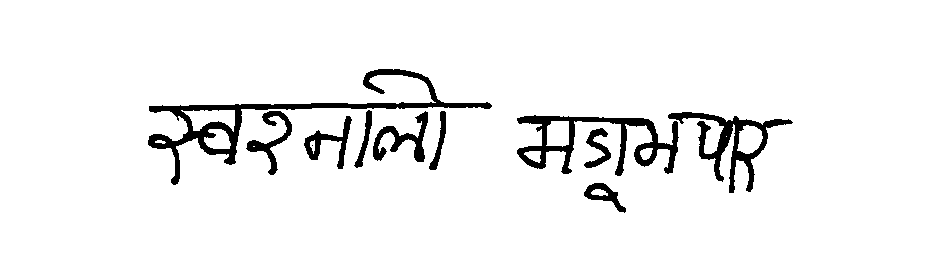 स्वरनाली मजूमदार